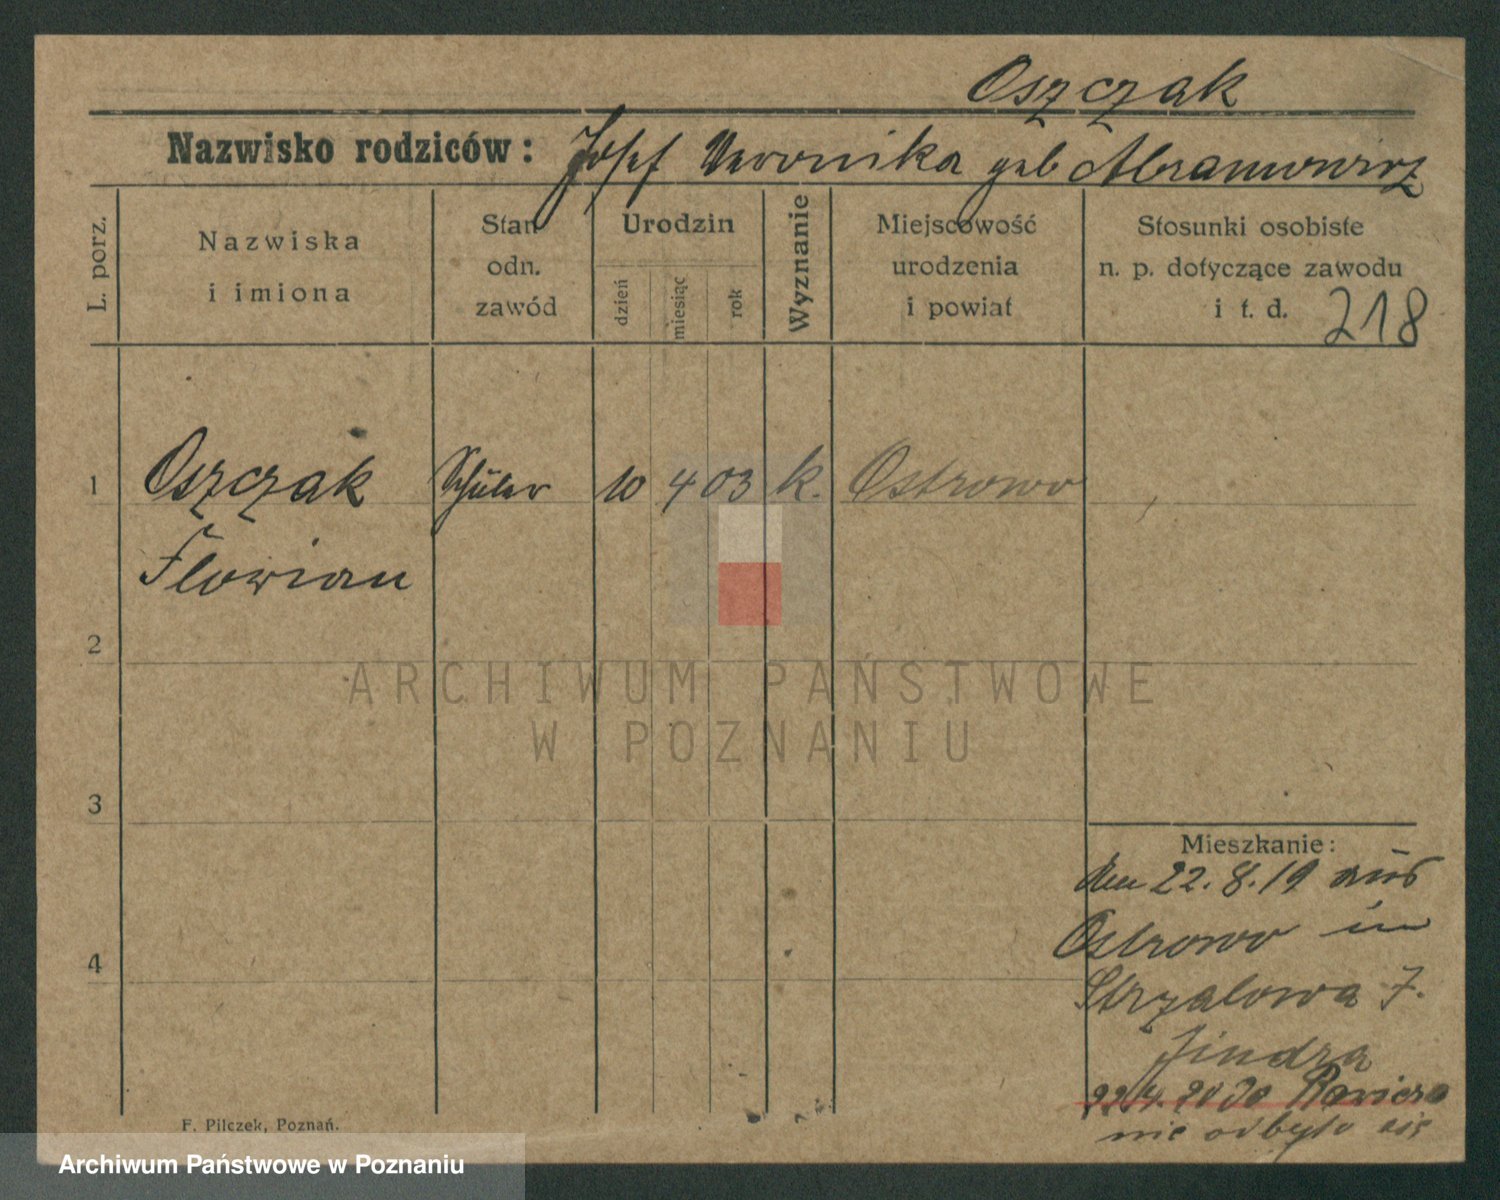 Oszczak
Nazwisko rodziców: Josef Veronika geb Abramowicz
L. porz.
Nazwiska
i imiona
Stan
odn.
zawód
Urodzin
dzień
miesiąc
rok
Wyznanie
Miejscowość
urodzenia
i powiat
Stosunki osobiste
n. p. dotyczące zawodu
i t. d. 218
1 Oszczak Schüler 10 4 03 k. Ostrowo
Florian
2
ARCHIWUM PAŃSTWOWE
W POZNANIU
3
Mieszkanie:
den 22.8.19 aus
Ostrowo in
4
Strzalowa 7.
Jindra
22.4.20 do Rawicza
nie odbyło się
F. Pilczek, Poznań.
Archiwum Państwowe w Poznaniu